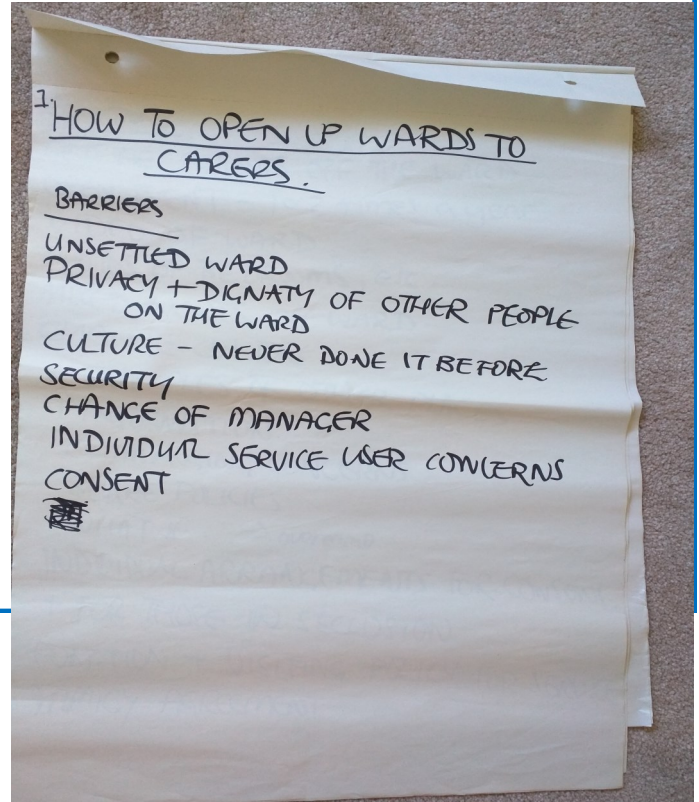 1.
HOW TO OPEN UP WARDS TO
CARERS.
BARRIERS
UNSETTLED WARD
PRIVACY + DIGNATY OF OTHER PEOPLE
ON THE WARD
CULTURE - NEVER DONE IT BEFORE
SECURITY
CHANGE OF MANAGER
INDIVIDUAL SERVICE USER CONCERNS
CONSENT